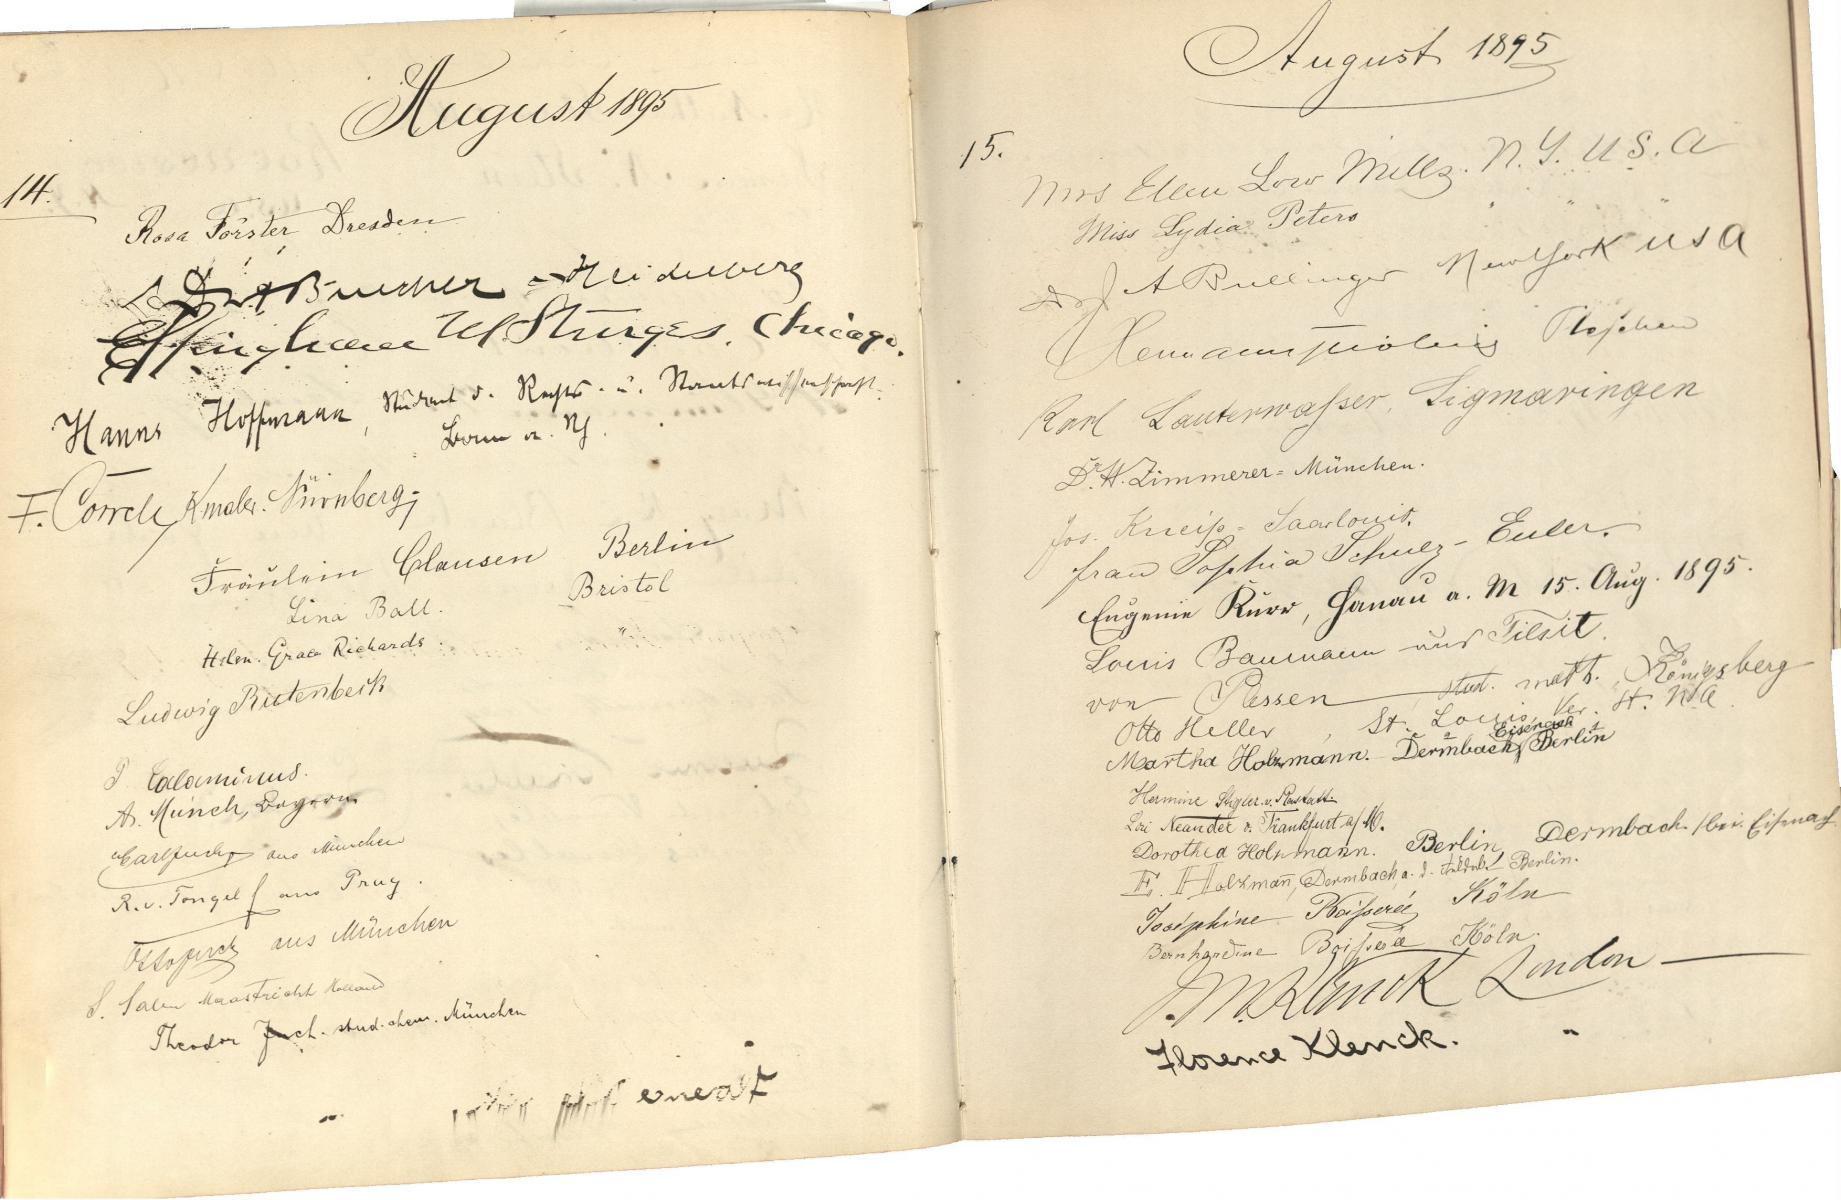 August 1895
14.
Rosa Förster Dresden
Heidelberg
Effingham W Sturges. Chicago.
Hanns Hoffmann, Student d. Rechts- u. Staatswissenschaft.
Bonn a. Rh.
F. Nürnberg
Fräulein Clausen Berlin
Lina Ball. Bristol
Helen. Grace Richards
Ludwig Rutenbeck
P. Calaminus.
A. Münch, Bayern
aus München
R. v. aus Prag.
aus München
S. Maastricht Holland
Theodor stud. chem. München
August 1895
15.
Mrs Ellen Low Mills. N. Y. U S. A
Miss Lydia Peters " " "
Dr J A Bullinger New York U S A
Hermann
Karl Lauterwasser, Sigmaringen
Dr. H. Zimmerer = München.
Jos. Kneiß - Saarlouis.
Frau Sophia Schulz - Euler.
Eugenie Kurr, Hanau a. M 15. Aug. 1895.
Louis Baumann aus Tilsit.
von Plessen stud. math. Königsberg
Otto Heller, St. Louis, Ver. St. N. A.
Eisenach
Martha Holzmann. Dermbach, Berlin
Hermine v. Rastatt.
Lori Neander v. Frankfurt a/M.
Dorothea Holzmann. Berlin, Dermbach /bei. Eisenach
E. Holzmann, Dermbach, a. d. Berlin.
Josephine Köln
Bernhardine Boisserée Köln.
J. M. Klenck London
Florence Klenck. "